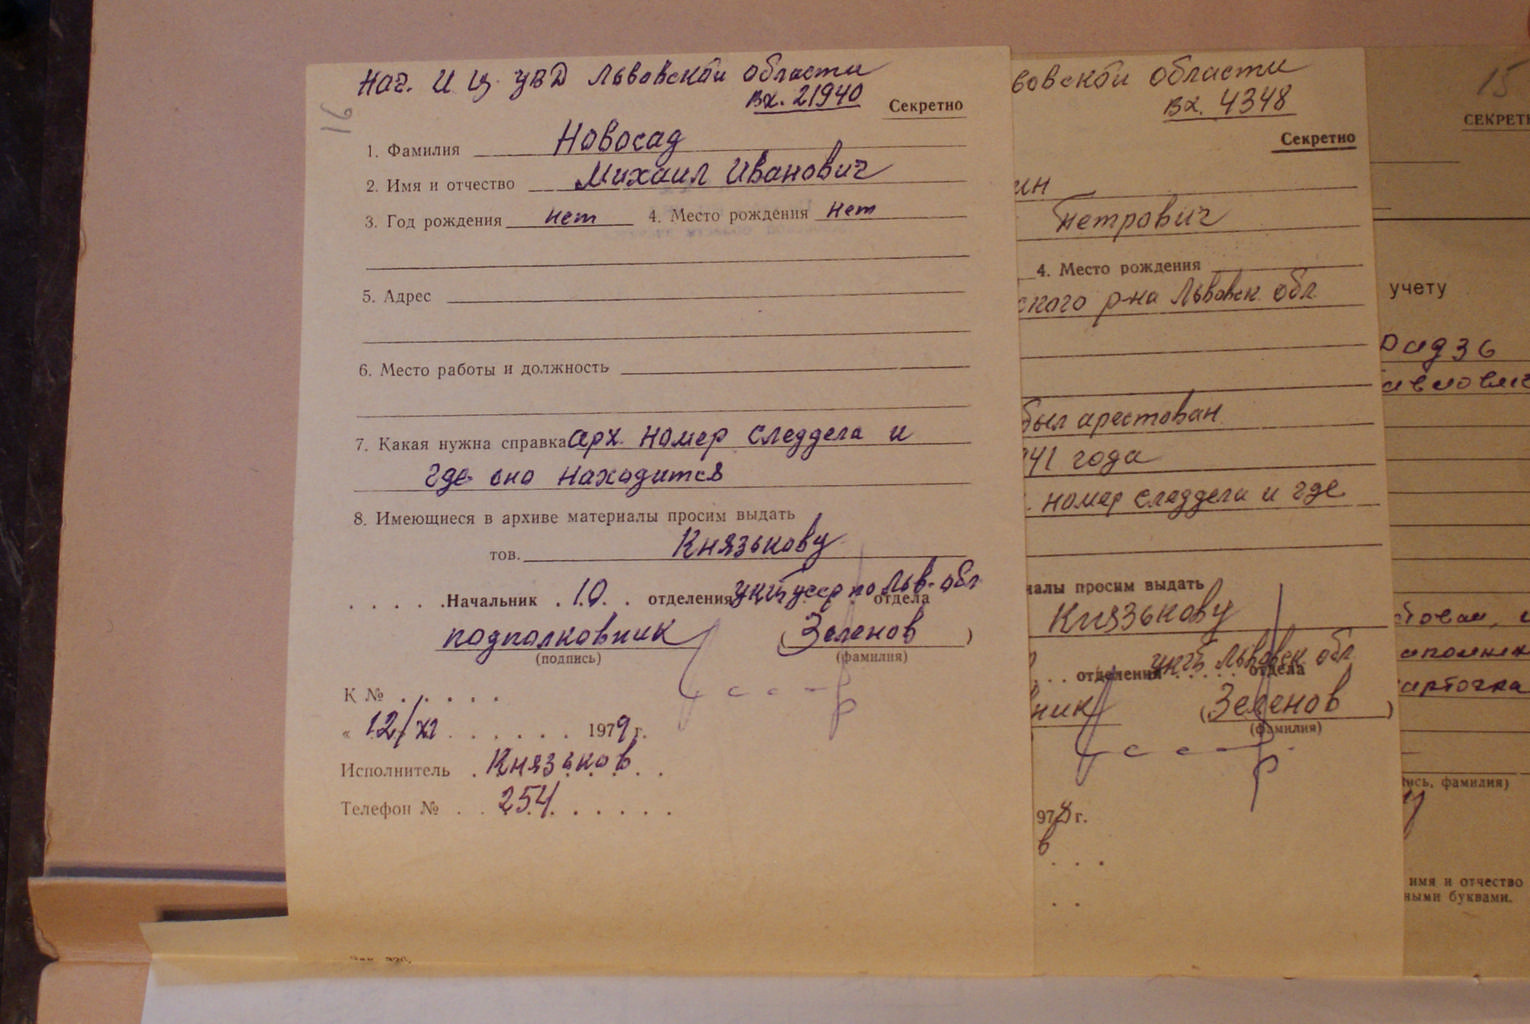 Нач. ИЦ УВД Львовской области
Вх. 21940
Секретно
16
1. Фамилия Новосад
2. Имя и отчество Михаил Иванович
3. Год рождения нет 4. Место рождения нет
5. Адрес
6. Место работы и должность
7. Какая нужна справка арх. номер следдела и
где оно находится
8. Имеющиеся в архиве материалы просим выдать
тов. Князькову
Начальник 10 отделения УКГБ УССР по Льв. обл отдела
подполковник (Зеленов)
(подпись) (фамилия)
К №
« 12/XI 1979 г.
Исполнитель Князьков
Телефон № 254
вовской области
Вх. 4348
Секретно
ин
Петрович
4. Место рождения
ского р-на Львовск. обл
был арестован
941 года
. номер следдела и где
иалы просим выдать
Князькову
отделения УКГБ Львовск обл отдела
ник (Зеленов)
(фамилия)
978 г.
в
15
СЕКРЕТН
учету
авлович
карточка
ись, фамилия)
имя и отчество
ными буквами.